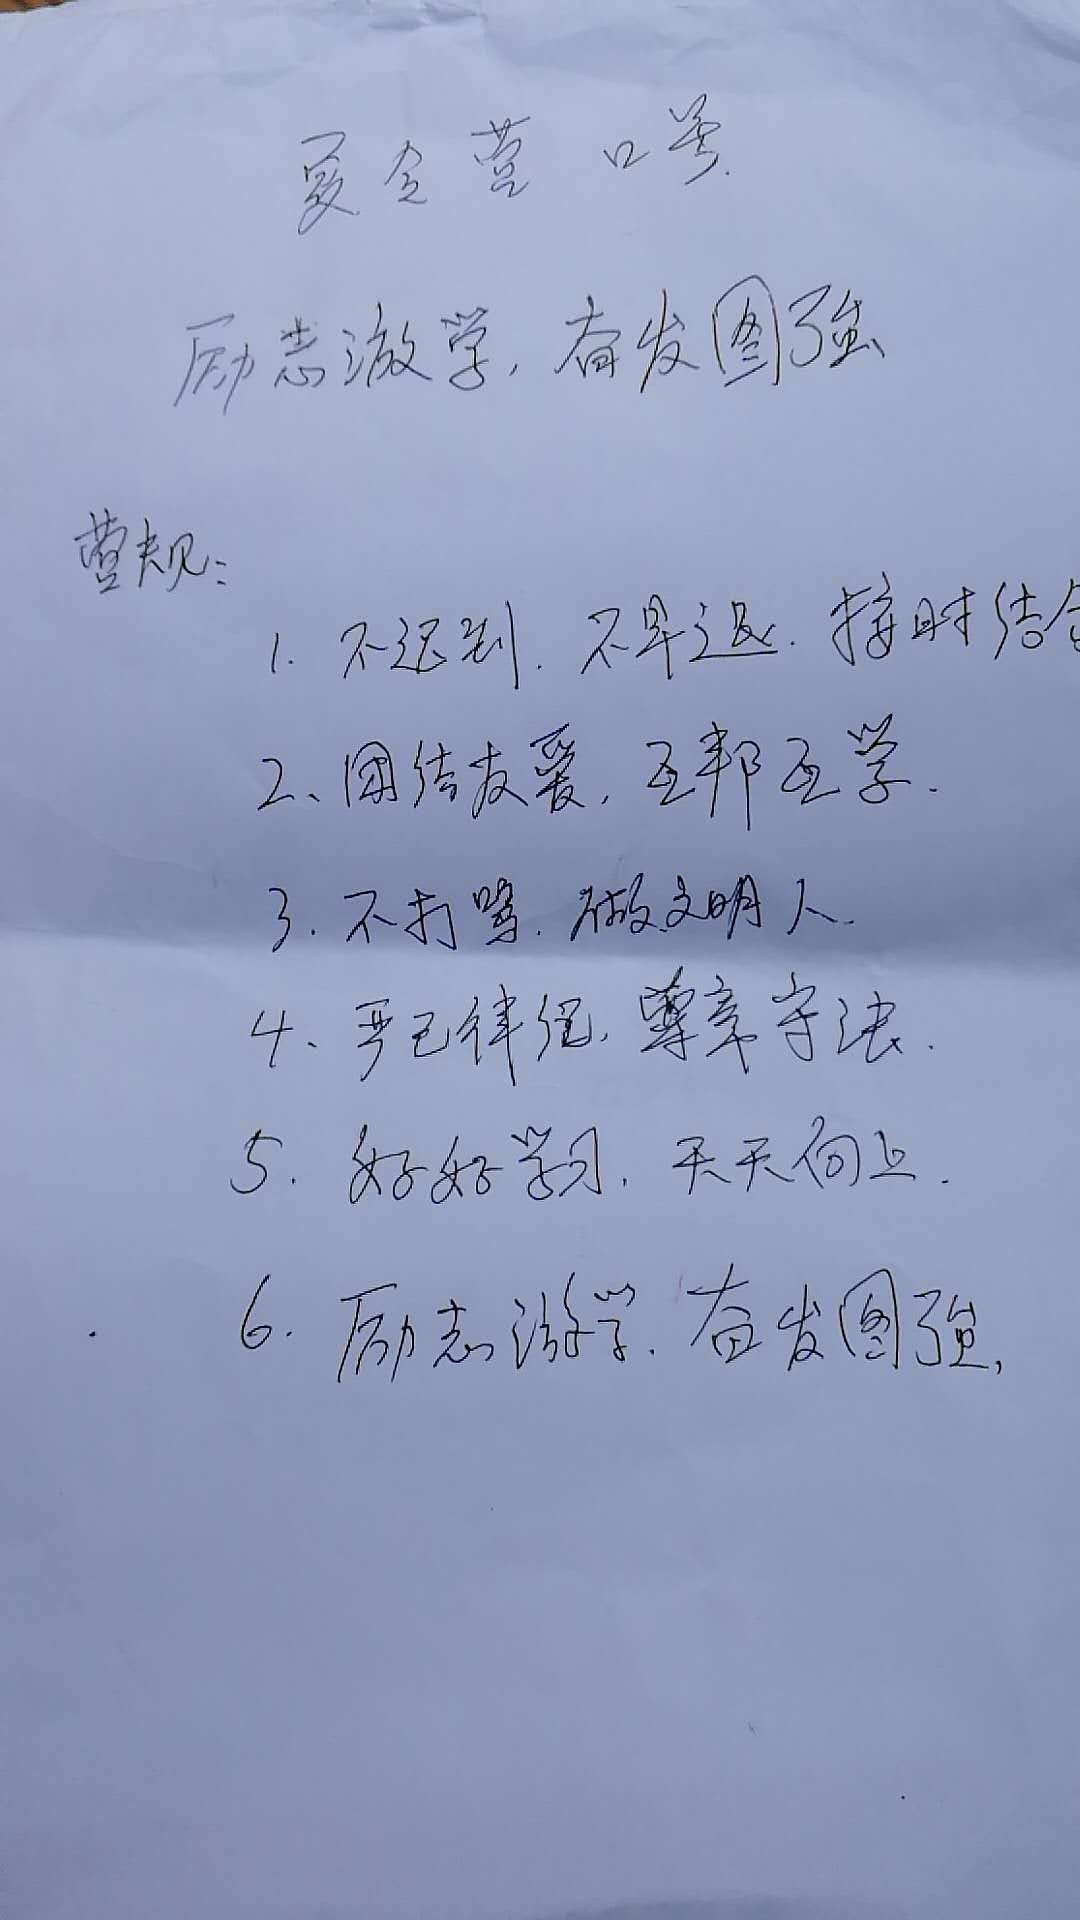 夏令营 口号.
励志游学, 奋发图强
营规:
1. 不迟到. 不早退. 按时结合
2、团结友爱, 互帮互学.
3. 不打骂. 做文明人.
4、严己律纪, 尊章守法.
5. 好好学习, 天天向上.
6. 励志游学. 奋发图强,